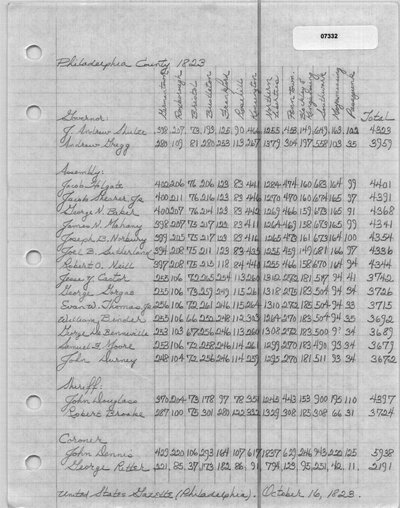 07332
Philadelphia County 1823
Germantown Roxborough Bristol Bustleton Frankford Roseville Kensington Northern Liberties Penn Town Southwark Moyamensing Passyunk
Governor: Total
J. Andrew Shulze 398 207 73 193 125 90 466 1255 453 149 649 163 102 4323
Andrew Gregg 280 109 81 280 253 113 267 1379 304 197 558 103 35 3959
Assembly:
Jacob Holgate 400 206 76 206 123 83 461 1284 474 160 683 164 99 4401
Jacob Shearer, Jr. 400 211 76 216 123 83 446 1270 470 160 674 165 97 4391
George N. Baker 400 207 76 214 123 83 442 1269 466 159 673 165 91 4368
James N. Mahany 398 207 73 217 122 83 411 1264 469 158 673 165 99 4341
Joseph B. Norbury 399 205 73 217 123 83 416 1265 473 161 673 164 100 4354
Joel B. Sutherland 394 208 75 211 123 83 435 1255 459 149 681 166 97 4336
Robert O'Neill 397 208 75 213 118 84 440 1255 466 158 670 164 94 4344
Jesse Y. Castor 253 106 72 265 254 113 260 1312 272 181 517 94 41 3742
George Gorgas 255 106 73 259 249 115 261 1318 275 183 504 94 34 3726
Evan W. Thomas, Jr. 256 106 72 261 246 115 264 1310 272 185 504 94 33 3715
William Binder 253 106 66 252 248 112 303 1264 270 183 504 94 35 3692
George De Benneville 253 103 67 256 246 113 260 1308 272 183 500 34 3689
Samuel B. Moore 253 106 72 258 246 114 261 1299 270 183 490 93 34 3679
John Durney 248 104 72 256 246 114 259 1295 270 181 511 93 34 3672
Sheriff:
John Douglass 370 204 73 178 97 78 351 1243 443 153 900 195 110 4397
Robert Brooke 287 100 75 301 280 122 332 1329 308 185 308 66 31 3724
Coroner
John Dennis 429 220 106 293 164 107 617 1837 629 246 943 220 125 5938
George Ritter 221 85 37 173 182 86 91 794 123 95 251 42 11 2191
United States Gazette (Philadelphia). October 16, 1823.